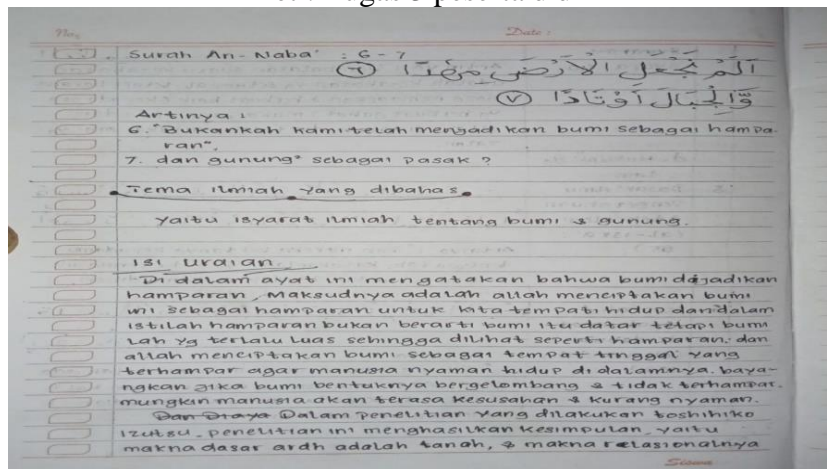 No.
Date :
Surah An-Naba' : 6 - 7
اَلَمْ نَجْعَلِ الْاَرْضَ مِهٰدًا ٦
وَّالْجِبَالَ اَوْتَادًا ٧
Artinya :
6. "Bukankah kami telah menjadikan bumi sebagai hampa-
ran",
7. dan gunung² sebagai pasak ?
Tema ilmiah yang dibahas
yaitu isyarat ilmiah tentang bumi & gunung.
isi uraian
Di dalam ayat ini mengatakan bahwa bumi dijadikan
hamparan, maksudnya adalah allah menciptakan bumi
ini sebagai hamparan untuk kita tempati hidup dan dalam
istilah hamparan bukan berarti bumi itu datar tetapi bumi
lah yg terlalu luas sehingga dilihat seperti hamparan. dan
allah menciptakan bumi sebagai tempat tinggal yang
terhampar agar manusia nyaman hidup di dalamnya. baya-
ngkan jika bumi bentuknya bergelombang & tidak terhampar.
mungkin manusia akan terasa kesusahan & kurang nyaman.
Dalam penelitian yang dilakukan toshihiko
izutsu, penelitian ini menghasilkan kesimpulan, yaitu
makna dasar ardh adalah tanah, & makna relasionalnya